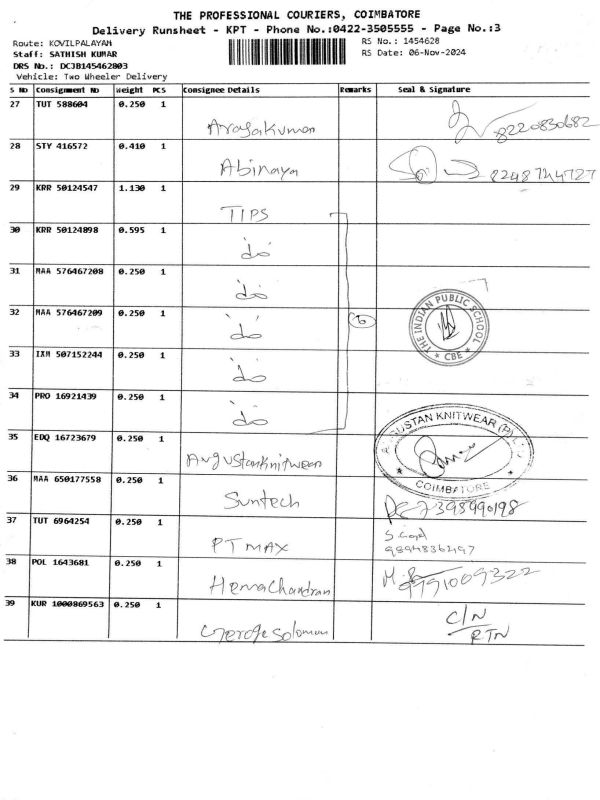 THE PROFESSIONAL COURIERS, COIMBATORE
Delivery Runsheet - KPT - Phone No.:0422-3505555 - Page No.:3
Route: KOVILPALAYAM
RS No.: 1454628
Staff: SATHISH KUMAR
RS Date: 06-Nov-2024
DRS No.: DCJB145462803
Vehicle: Two Wheeler Delivery
S No Consignment No Weight PCS Consignee Details Remarks Seal & Signature
27 TUT 588604 0.250 1
8220830682
28 STY 416572 0.410 1
Abinaya 8248744727
29 KRR 50124547 1.130 1
TIPS
30 KRR 50124898 0.595 1
do
31 MAA 576467208 0.250 1
do
32 MAA 576467209 0.250 1
do 6 THE INDIAN PUBLIC SCHOOL * CBE *
33 IXM 507152244 0.250 1
do
34 PRO 16921439 0.250 1
do
35 EDQ 16723679 0.250 1
Augustanknitwear KNITWEAR COIMBATORE
36 MAA 650177558 0.250 1
Suntech 7398990198
37 TUT 6964254 0.250 1
PT MAX
38 POL 1643681 0.250 1
Hemachandran 9791009322
39 KUR 1000869563 0.250 1
George Solomon C/N
RTN